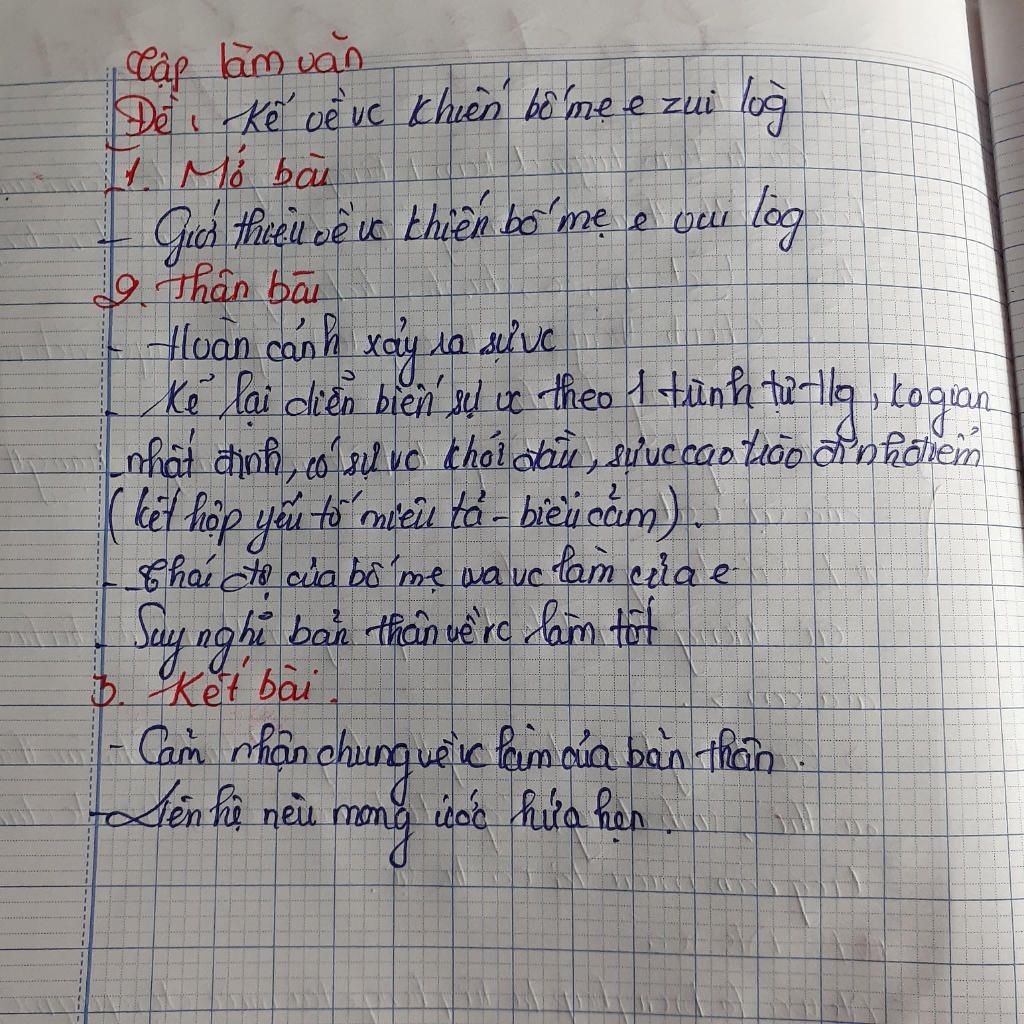 Tập làm văn
Đề: Kể về vc khiến bố mẹ e zui lòg
1. Mở bài
- Giới thiệu về vc khiến bố mẹ e vui lòg
2. Thân bài
- Hoàn cảnh xảy ra sự vc
- Kể lại diễn biến sự vc theo 1 trình tự tg, ko gian
nhất định, có sự vc khởi đầu, sự vc cao trào đỉnh điểm
(kết hợp yếu tố miêu tả - biểu cảm).
- Thái độ của bố mẹ va vc làm của e
- Suy nghĩ bản thân về vc làm tốt
3. Kết bài.
- Cảm nhận chung về vc làm của bản thân.
- Liên hệ nêu mong ước hứa hẹn.